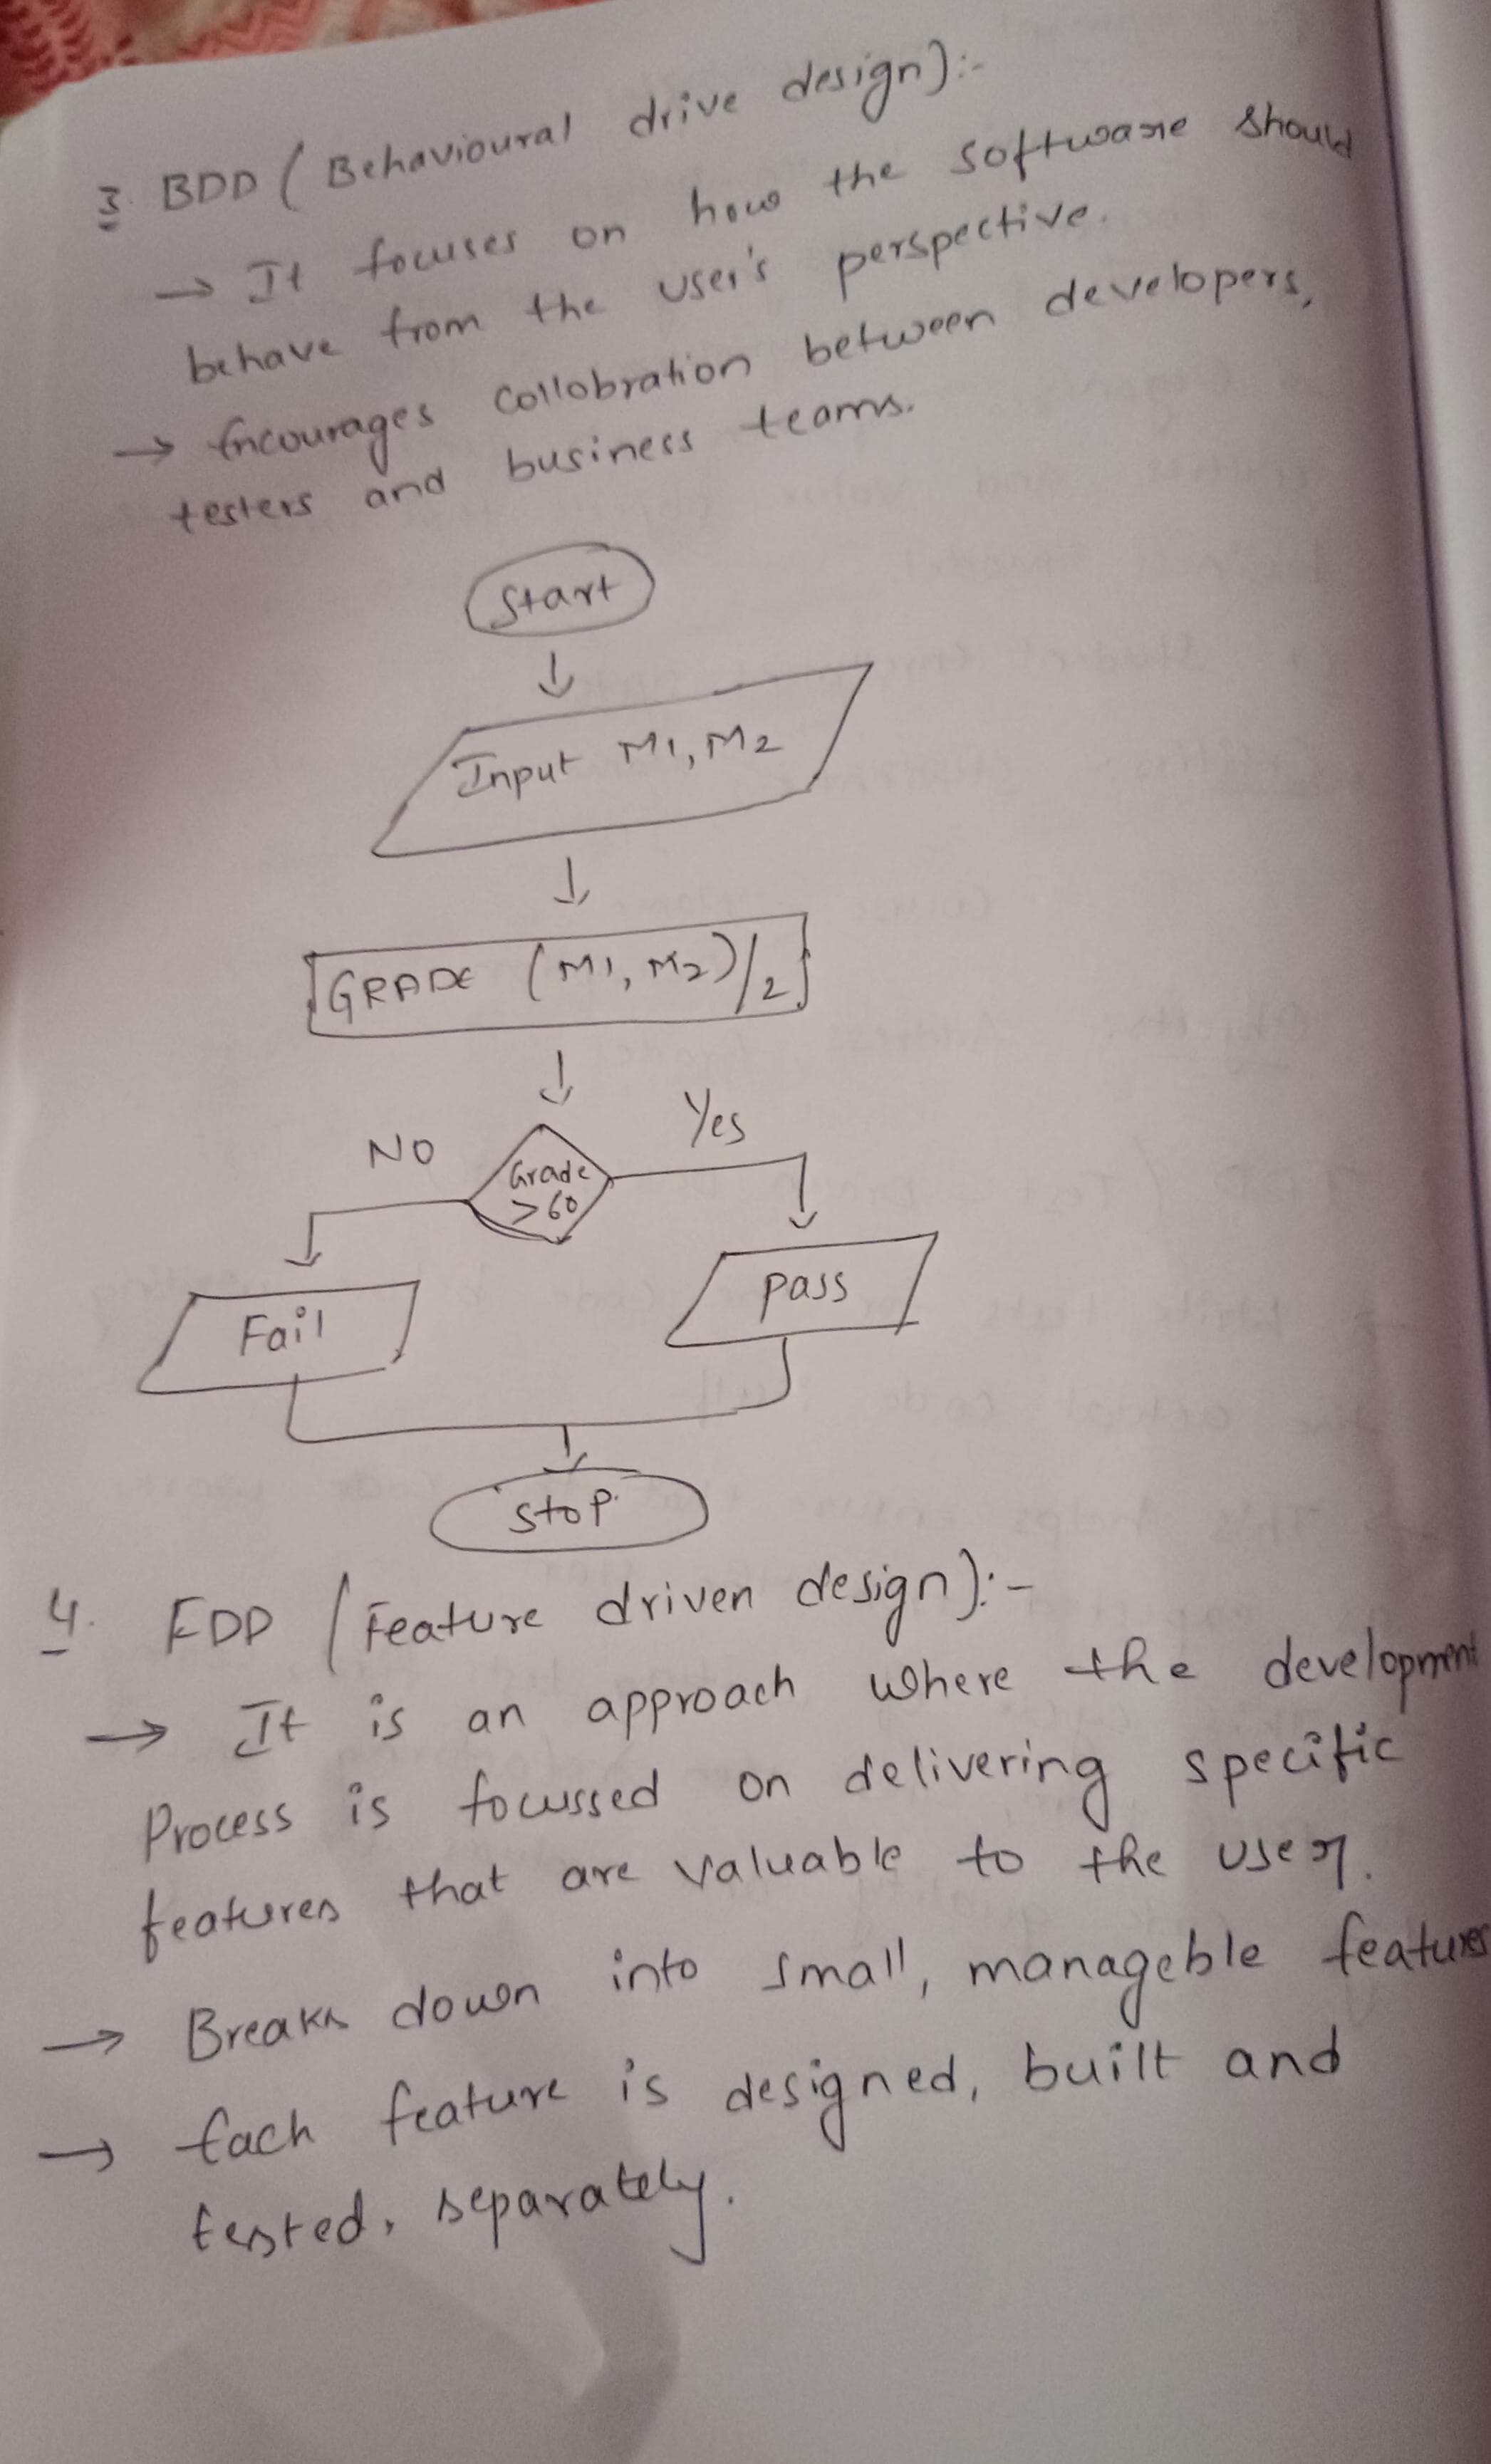 3. BDD ( Behavioural drive design):-
→ It focuses on how the software should
behave from the user's perspective.
→ Encourages collobration between developers,
testers and business teams.
Start
Input M1, M2
GRADE (M1, M2)/2
NO
Yes
Grade
>60
Fail
pass
stop
4. FDD (Feature driven design):-
→ It is an approach where the development
Process is focussed on delivering specific
features that are valuable to the user.
→ Breaks down into small, manageble features
→ Each feature is designed, built and
tested, separately.